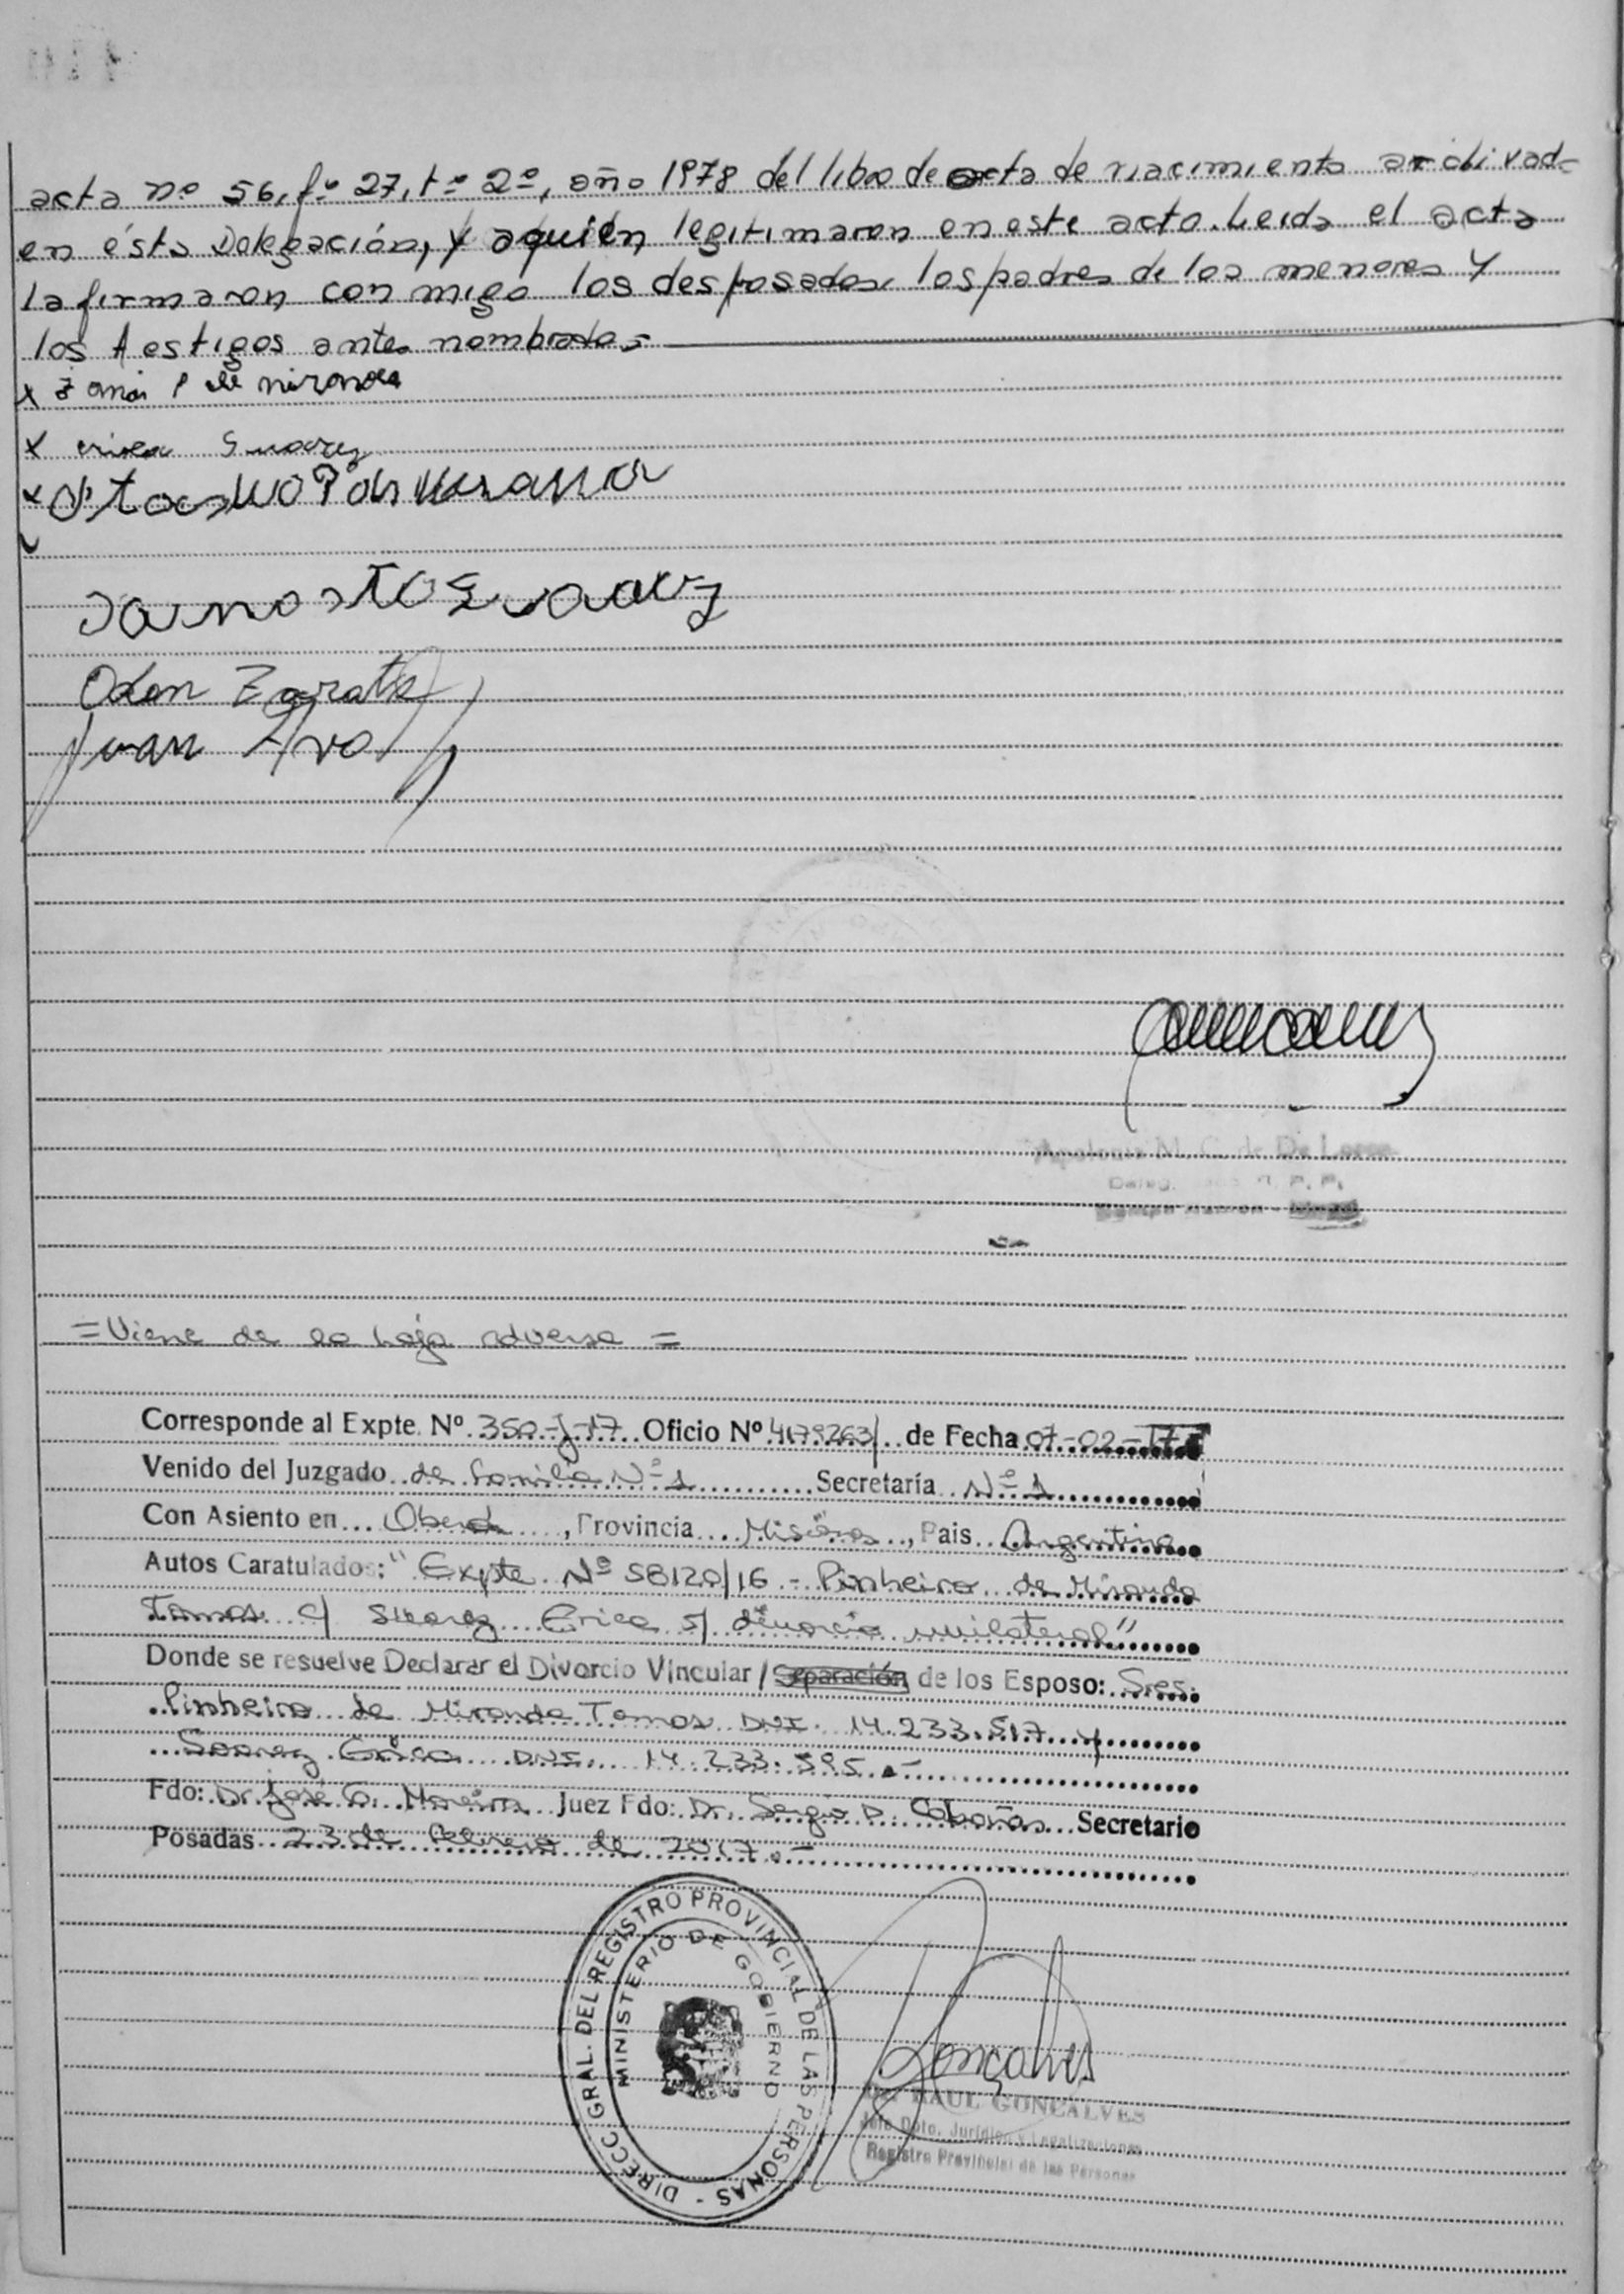 acta nº 56, fº 27, tº 2º, año 1978 del libro de acta de nacimiento archivada
en ésta Delegación, y aquién legitimaron en este acto. Leida el acta
la firmaron con migo los desposados, los padres de los menores y
los testigos antes nombrados.-
x P de miranda
x erica Suarez
x
Suarez
Odon Zarate
Juan
De Lorea
=Viene de la hoja adversa=
Corresponde al Expte. Nº 350-J-17 Oficio Nº 4179263/ de Fecha 07-02-17
Venido del Juzgado de Familia Nº 1 Secretaría Nº 1
Con Asiento en Oberá, Provincia Misiones, Pais Argentina
Autos Caratulados: "Expte. Nº 58120/16 - Pinheiro de Miranda
Tomas c/ Suarez Erica s/ divorcio unilateral"
Donde se resuelve Declarar el Divorcio Vincular / Separación de los Esposo: Sres.
Pinheiro de Miranda Tomas DNI. 14.233.517 y
Suarez Erica DNI. 14.233.595.-
Fdo: Dr. José G. Moreira Juez Fdo: Dr. Sergio D. Cabañas Secretario
Posadas 23 de Febrero de 2017.-
DIRECC. GRAL. DEL REGISTRO PROVINCIAL DE LAS PERSONAS -
MINISTERIO DE GOBIERNO
Goncalves
RAUL GONCALVES
Jefe Dpto. Jurídico y Legalizaciones
Registro Provincial de las Personas